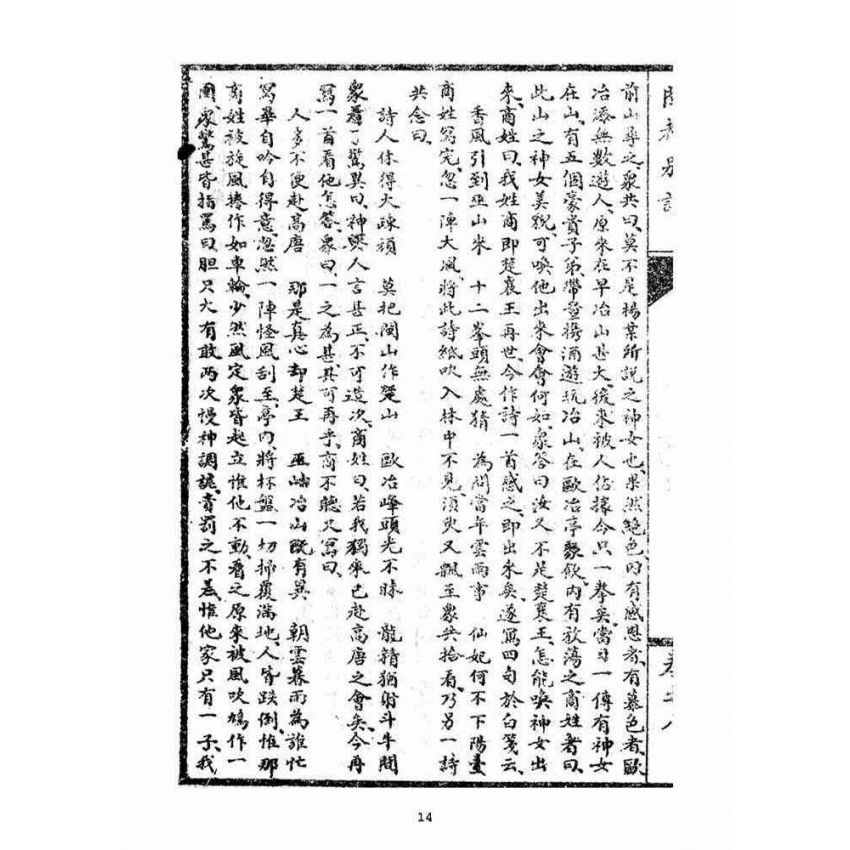 前山尋之眾共曰莫不是楊葉所說之神女也果然絕色內有感恩者有慕色者歐
冶添無數遊人原來在早冶山甚大後來被人佔據今只一拳矣當日一傳有神女
在山有五個豪貴子弟帶童攜酒遊玩冶山在歐冶亭聚飲內有放蕩之商姓者曰
此山之神女美貌可喚他出來會會何如眾答曰汝又不是楚襄王怎能喚神女出
來商姓曰我姓商即楚襄王再世今作詩一首感之即出來矣遂寫四句於白箋云
香風引到巫山來　十二峯頭無處猜　為問當年雲雨事　仙妃何不下陽臺
商姓寫完忽一陣大風將此詩紙吹入林中不見須臾又飄至眾共拾看乃另一詩
共念曰
詩人休得大疎頑　莫把閩山作楚山　歐冶峰頭光不昧　龍精猶射斗牛間
眾看了驚異曰神與人言甚正不可造次商姓曰若我獨來已赴高唐之會矣今再
寫一首看他怎答眾曰一之為甚其可再乎商不聽又寫曰
人多不便赴高唐　那是真心却楚王　巫岫冶山既有異　朝雲暮雨為誰忙
寫畢自吟自得意忽然一陣怪風刮至亭內將杯盤一切掃覆滿地人皆跌倒惟那
商姓被旋風捲作如車輪少然風定眾皆起立惟他不動看之原來被風吹鳩作一
團眾驚甚皆指罵曰胆只大有敢兩次慢神調謔責罰之不差惟他家只有一子我
14